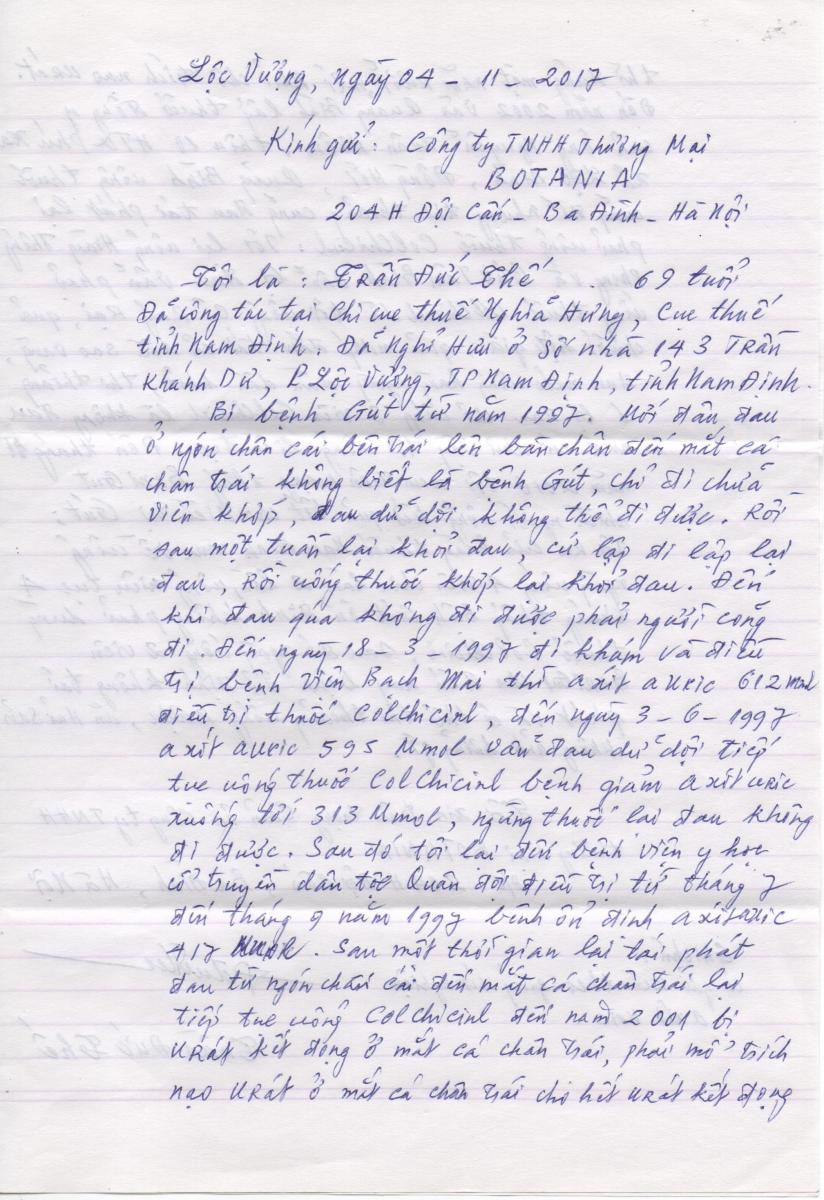 Lộc Vượng, ngày 04 - 11 - 2017
Kính gửi : Công ty TNHH Thương Mại
BOTANIA
204H Đội Cấn - Ba Đình - Hà Nội
Tôi là : Trần Đức Thế . 69 tuổi
Đã công tác tại Chi cục thuế Nghĩa Hưng, Cục thuế
tỉnh Nam Định. Đã Nghỉ Hưu ở Số nhà 143 Trần
Khánh Dư, P Lộc Vượng, TP Nam Định, tỉnh Nam Định.
Bị bệnh Gút từ năm 1997. Mới đầu đau
ở ngón chân cái bên trái lên bàn chân đến mắt cá
chân trái không biết là bệnh Gút, chỉ đi chữa
viên khớp, đau dữ dội không thể đi được. Rồi
sau một tuần lại khỏi đau, cứ lập đi lập lại
đau, rồi uống thuốc khớp lại khỏi đau. Đến
khi đau quá không đi được phải người cõng
đi. Đến ngày 18 - 3 - 1997 đi khám và điều
trị bệnh viện Bạch Mai thì axít auric 612 mmol
điều trị thuốc Colchicinl, đến ngày 3 - 6 - 1997
axít auric 595 Mmol vẫn đau dữ dội tiếp
tục uống thuốc Colchicinl bệnh giảm axít uric
xuống tới 313 Mmol, ngừng thuốc lại đau không
đi được. Sau đó tôi lại đến bệnh viện y học
cổ truyền dân tộc Quân đội điều trị từ tháng 7
đến tháng 9 năm 1997 bệnh ổn định axít auric
417 . Sau một thời gian lại tái phát
đau từ ngón chân cái đến mắt cá chân trái lại
tiếp tục uống Colchicinl đến năm 2001 bị
Urát kết đọng ở mắt cá chân trái, phải mổ trích
nạo Urát ở mắt cá chân trái cho hết Urát kết đọng